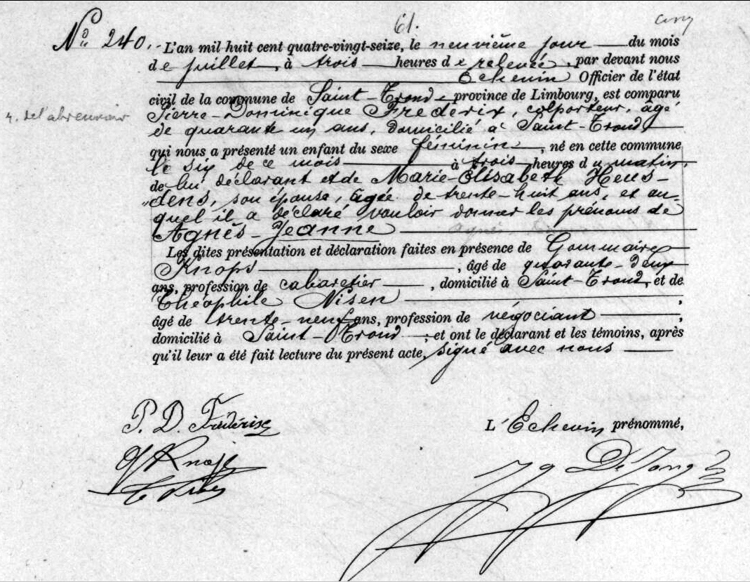 61.
Nº 240.
L'an mil huit cent quatre-vingt-seize, le neuvième jour du mois
de juillet, à trois heures de relevée, par devant nous
Echevin Officier de l'état
civil de la commune de Saint-Trond province de Limbourg, est comparu
Pierre-Dominique Frederix, colporteur, âgé
de quarante un ans, domicilié à Saint-Trond
qui nous a présenté un enfant du sexe féminin, né en cette commune
le six de ce mois à trois heures du matin,
de lui déclarant et de Marie-Elisabeth Heus-
dens, son épouse, âgée de trente-huit ans, et au-
quel il a déclaré vouloir donner les prénoms de
Agnès-Jeanne
Les dites présentation et déclaration faites en présence de Gommaire
Knops, âgé de quarante-deux
ans, profession de cabaretier, domicilié à Saint-Trond, et de
Théophile Nisen,
âgé de trente-neuf ans, profession de négociant
domicilié à Saint-Trond; et ont le déclarant et les témoins, après
qu'il leur a été fait lecture du présent acte, signé avec nous
P. D. Frédérix
L'Echevin prénommé,
G Knops